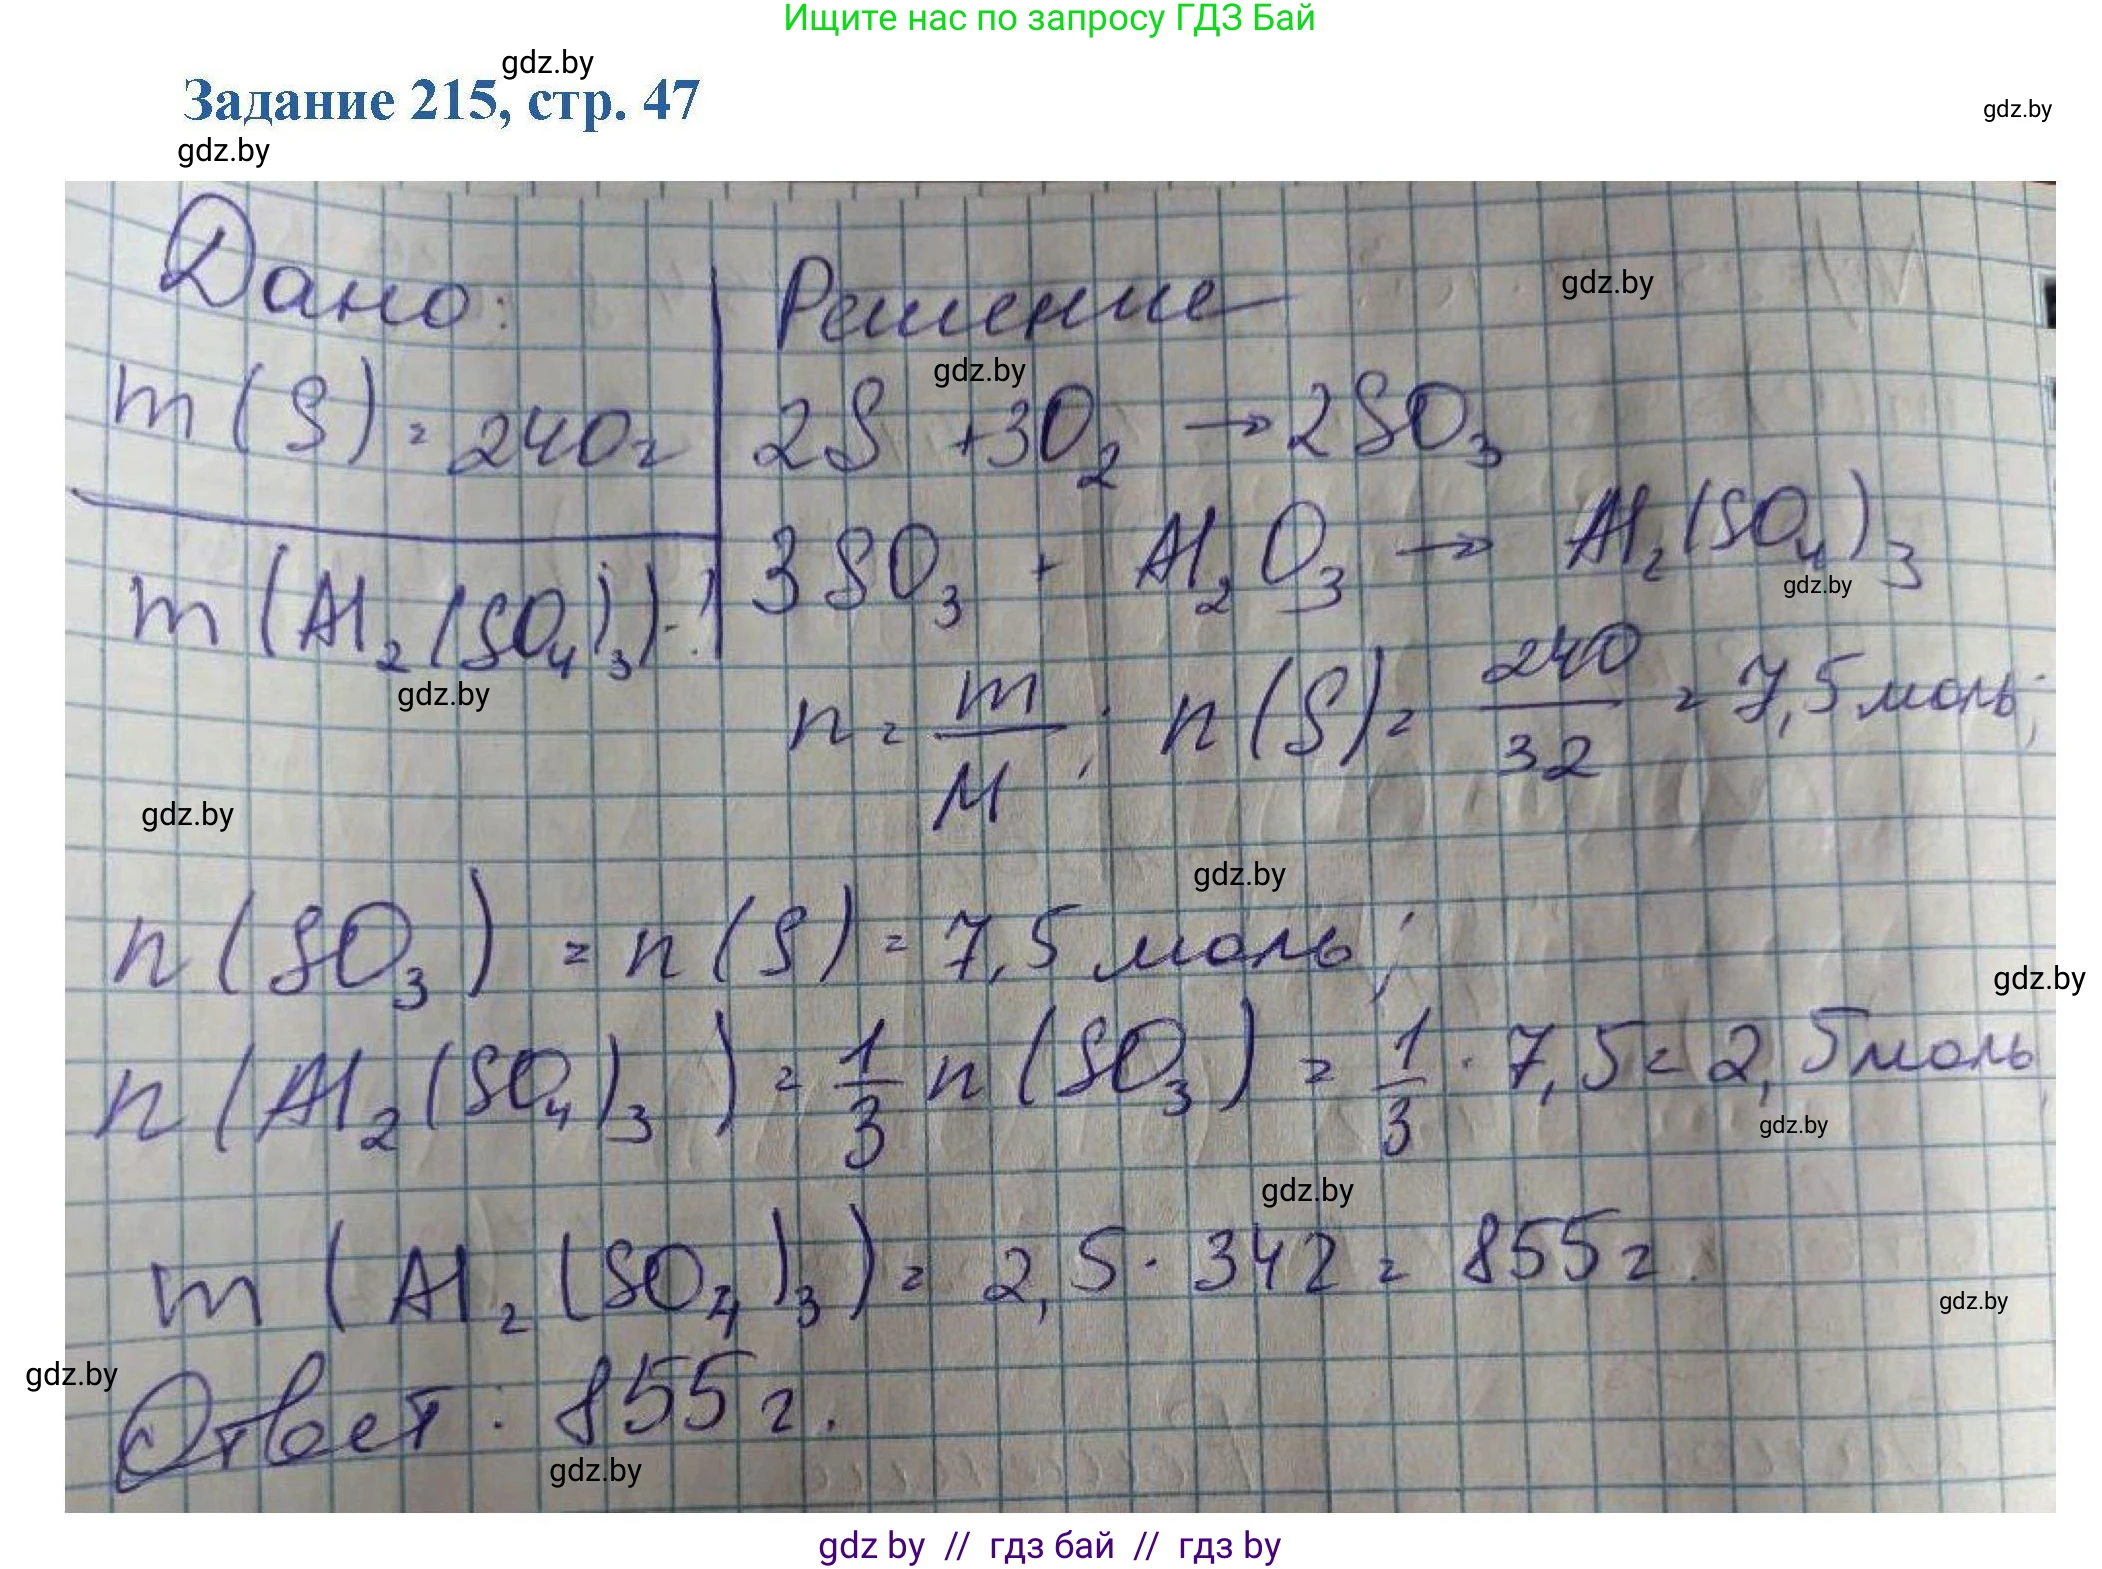 Ищите нас по запросу ГДЗ Бай
gdz.by
Задание 215, стр. 47
gdz.by
gdz.by
Дано:
Решение
gdz.by
gdz.by
m(S) = 240г
2S + 3O₂ → 2SO₃
m(Al₂(SO₄)₃)-?
3SO₃ + Al₂O₃ → Al₂(SO₄)₃
gdz.by
gdz.by
n = m/M; n(S) = 240/32 = 7,5 моль;
gdz.by
gdz.by
n(SO₃) = n(S) = 7,5 моль;
gdz.by
n(Al₂(SO₄)₃) = 1/3 n(SO₃) = 1/3 · 7,5 = 2,5 моль,
gdz.by
gdz.by
m(Al₂(SO₄)₃) = 2,5 · 342 = 855г.
gdz.by
gdz.by
Ответ: 855г.
gdz.by
gdz by // гдз бай // гдз by